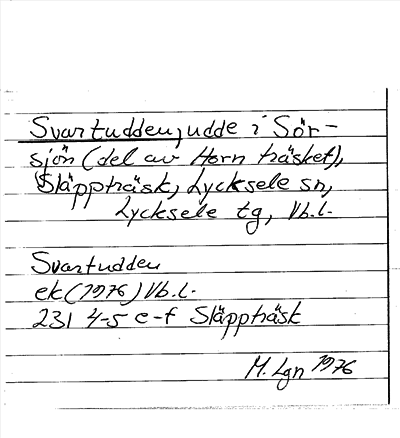 Svartudden, udde i Sör-
sjön (del av Hornträsket),
Släppträsk, Lycksele sn,
Lycksele tg, Vb.l.
Svartudden
ek (1976) Vb.l.
231 4-5 e-f Släppträsk
M. Lgn 1976